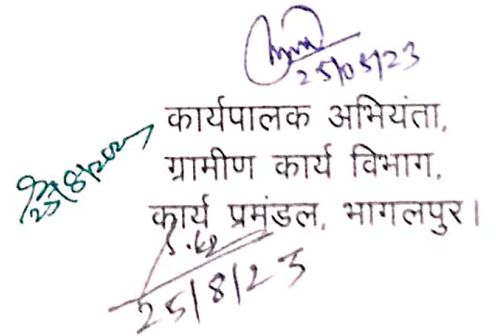 25/08/23
कार्यपालक अभियंता,
25/8/202
ग्रामीण कार्य विभाग,
कार्य प्रमंडल, भागलपुर।
25/8/23